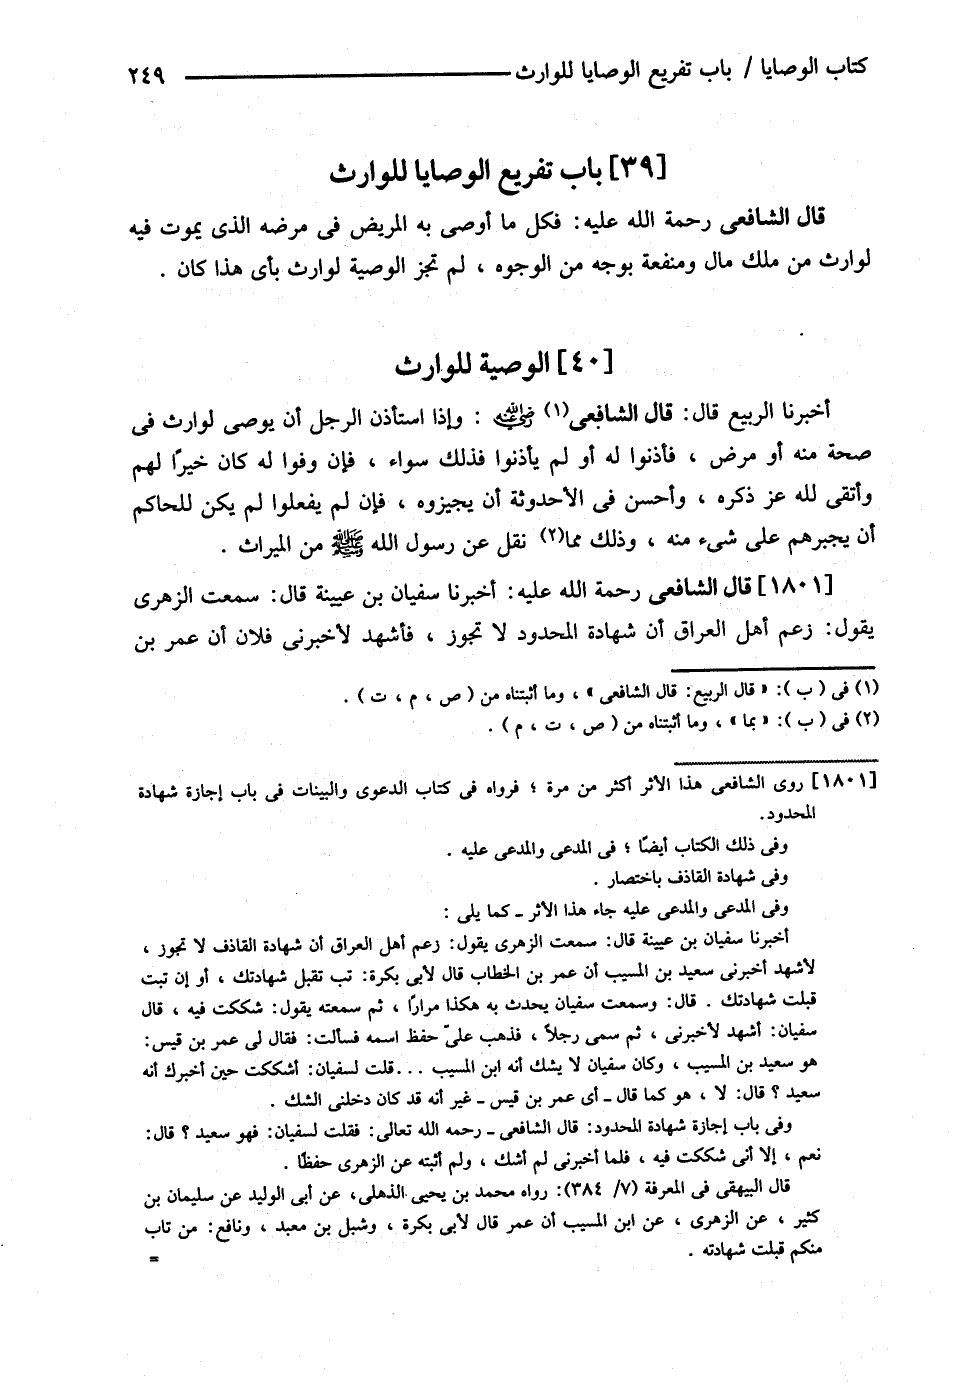 كتاب الوصايا / باب تفريع الوصايا للوارث ـــــــــ ٢٤٩
[٣٩] باب تفريع الوصايا للوارث
قال الشافعى رحمة الله عليه: فكل ما أوصى به المريض فى مرضه الذى يموت فيه
لوارث من ملك مال ومنفعة بوجه من الوجوه ، لم تجز الوصية لوارث بأى هذا كان .
[٤٠] الوصية للوارث
أخبرنا الربيع قال: قال الشافعى(١) رضي الله عنه : وإذا استأذن الرجل أن يوصى لوارث فى
صحة منه أو مرض ، فأذنوا له أو لم يأذنوا فذلك سواء ، فإن وفوا له كان خيرًا لهم
وأتقى لله عز ذكره ، وأحسن فى الأحدوثة أن يجيزوه ، فإن لم يفعلوا لم يكن للحاكم
أن يجبرهم على شىء منه ، وذلك مما(٢) نقل عن رسول الله ﷺ من الميراث .
[١٨٠١] قال الشافعى رحمة الله عليه: أخبرنا سفيان بن عيينة قال: سمعت الزهرى
يقول: زعم أهل العراق أن شهادة المحدود لا تجوز ، فأشهد لأخبرنى فلان أن عمر بن
(١) فى ( ب ): « قال الربيع: قال الشافعى » ، وما أثبتناه من ( ص ، م ، ت ) .
(٢) فى ( ب ): « بما » ، وما أثبتناه من ( ص ، ت ، م ) .
[١٨٠١] روى الشافعى هذا الأثر أكثر من مرة ؛ فرواه فى كتاب الدعوى والبينات فى باب إجازة شهادة
المحدود.
وفى ذلك الكتاب أيضًا ؛ فى المدعى والمدعى عليه .
وفى شهادة القاذف باختصار .
وفى المدعى والمدعى عليه جاء هذا الأثر ـ كما يلى :
أخبرنا سفيان بن عيينة قال: سمعت الزهرى يقول: زعم أهل العراق أن شهادة القاذف لا تجوز ،
لأشهد أخبرنى سعيد بن المسيب أن عمر بن الخطاب قال لأبى بكرة: تب تقبل شهادتك ، أو إن تبت
قبلت شهادتك . قال: وسمعت سفيان يحدث به هكذا مرارًا ، ثم سمعته يقول: شككت فيه ، قال
سفيان: أشهد لأخبرنى ، ثم سمى رجلاً ، فذهب علىّ حفظ اسمه فسألت: فقال لى عمر بن قيس:
هو سعيد بن المسيب ، وكان سفيان لا يشك أنه ابن المسيب ... قلت لسفيان: أشككت حين أخبرك أنه
سعيد ؟ قال: لا ، هو كما قال ـ أى عمر بن قيس ـ غير أنه قد كان دخلنى الشك .
وفى باب إجازة شهادة المحدود: قال الشافعى ـ رحمه الله تعالى: فقلت لسفيان: فهو سعيد ؟ قال:
نعم ، إلا أنى شككت فيه ، فلما أخبرنى لم أشك ، ولم أثبته عن الزهرى حفظًا .
قال البيهقى فى المعرفة (٧/ ٣٨٤): رواه محمد بن يحيى الذهلى، عن أبى الوليد عن سليمان بن
كثير ، عن الزهرى ، عن ابن المسيب أن عمر قال لأبى بكرة ، وشبل بن معبد ، ونافع: من تاب
منكم قبلت شهادته . =